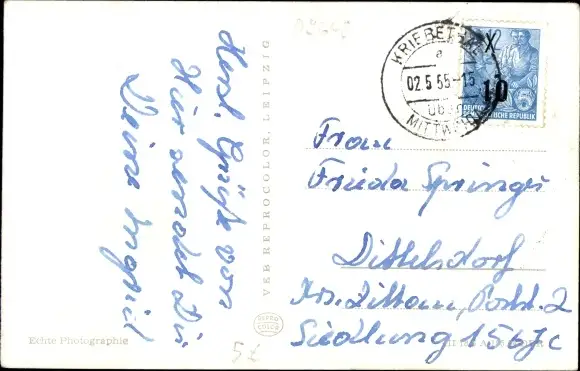 Herzl. Grüße von
Hier sendet Dir
Deine Ingrid
VEB REPROCOLOR, LEIPZIG
Echte Photographie
5 €
REPRO
COLOR
KRIEBETHAL
a
02.5.55-15
MITTWEIDA
10
5
DEUTSCHE DEMOKRATISCHE REPUBLIK
Frau
Frieda Springer
Dittelsdorf
Krs. Zittau, Postk. 2
Siedlung 156Jc